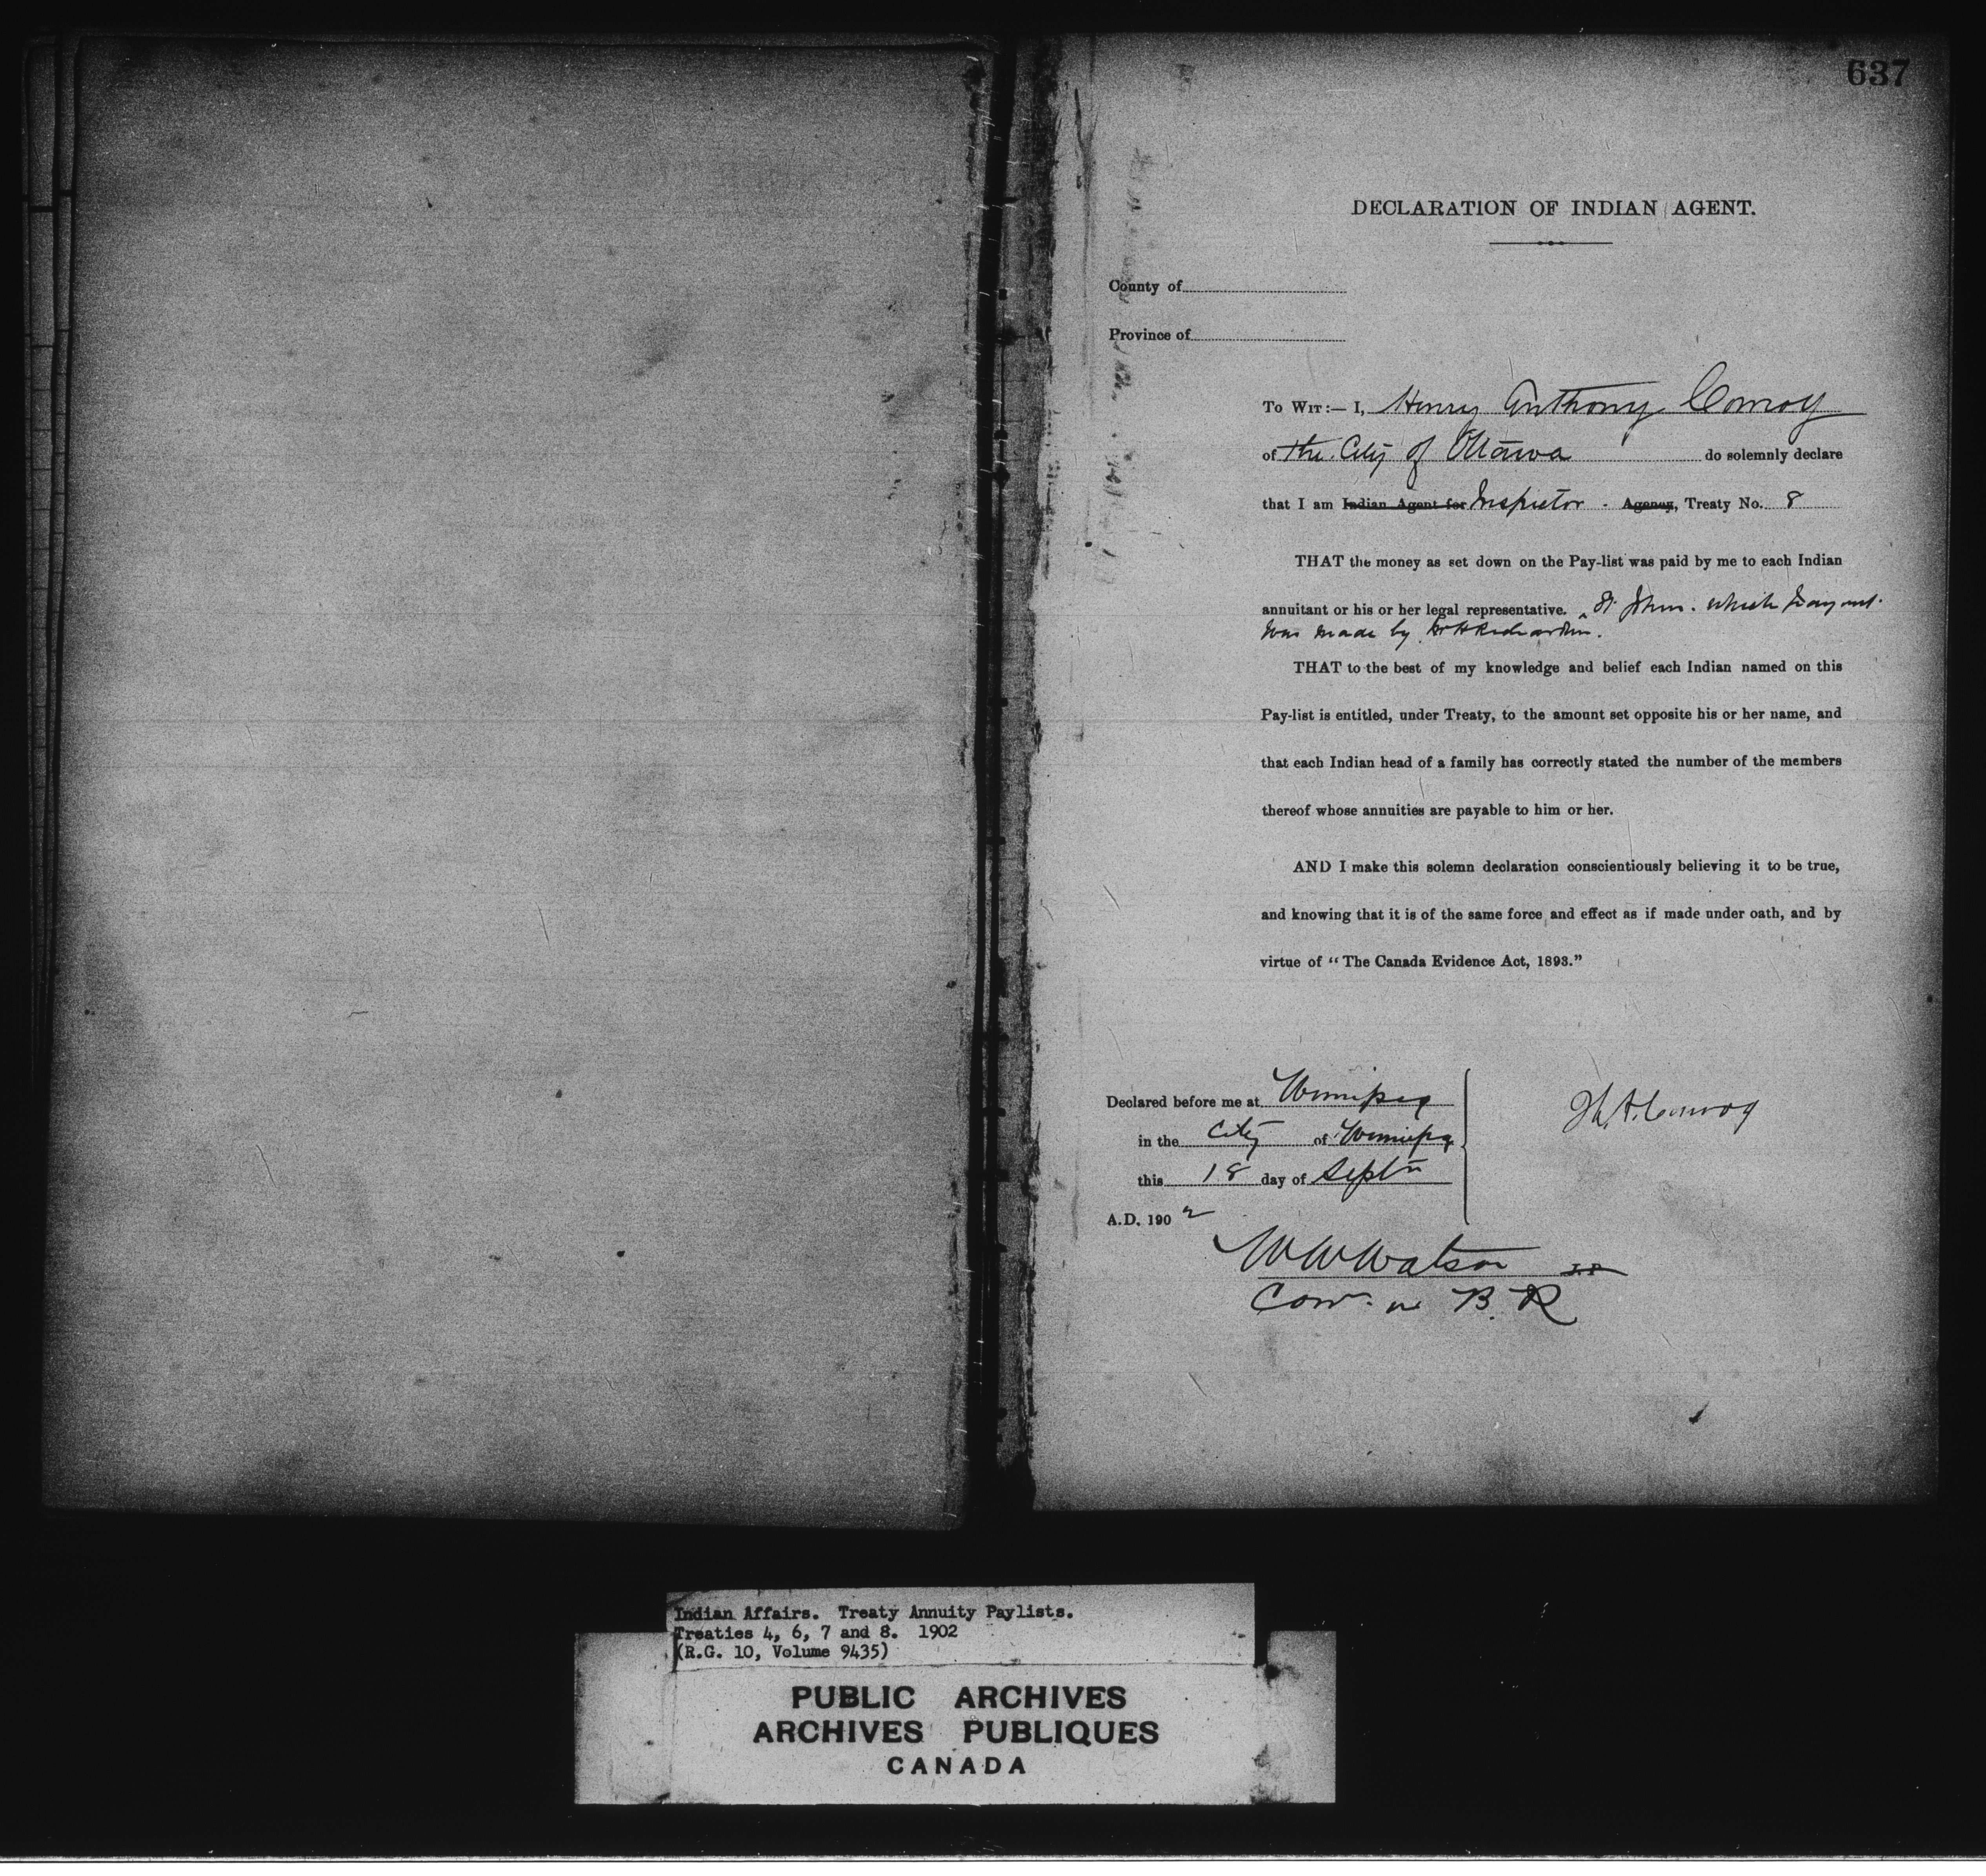 637
DECLARATION OF INDIAN AGENT.
County of
Province of
To Wit:— I, Henry Anthony Conroy
of the City of Ottawa do solemnly declare
that I am Indian Agent for Inspector . Agency, Treaty No. 8
THAT the money as set down on the Pay-list was paid by me to each Indian
annuitant or his or her legal representative. St John. which payment
was made by Richardson.
THAT to the best of my knowledge and belief each Indian named on this
Pay-list is entitled, under Treaty, to the amount set opposite his or her name, and
that each Indian head of a family has correctly stated the number of the members
thereof whose annuities are payable to him or her.
AND I make this solemn declaration conscientiously believing it to be true,
and knowing that it is of the same force and effect as if made under oath, and by
virtue of "The Canada Evidence Act, 1893."
Declared before me at Winnipeg
in the City of Winnipeg
this 18 day of Septr
A.D. 1902
H. A. Conroy
W W Watson J.P.
Com. in B. R
Indian Affairs. Treaty Annuity Paylists.
Treaties 4, 6, 7 and 8. 1902
(R.G. 10, Volume 9435)
PUBLIC ARCHIVES
ARCHIVES PUBLIQUES
CANADA